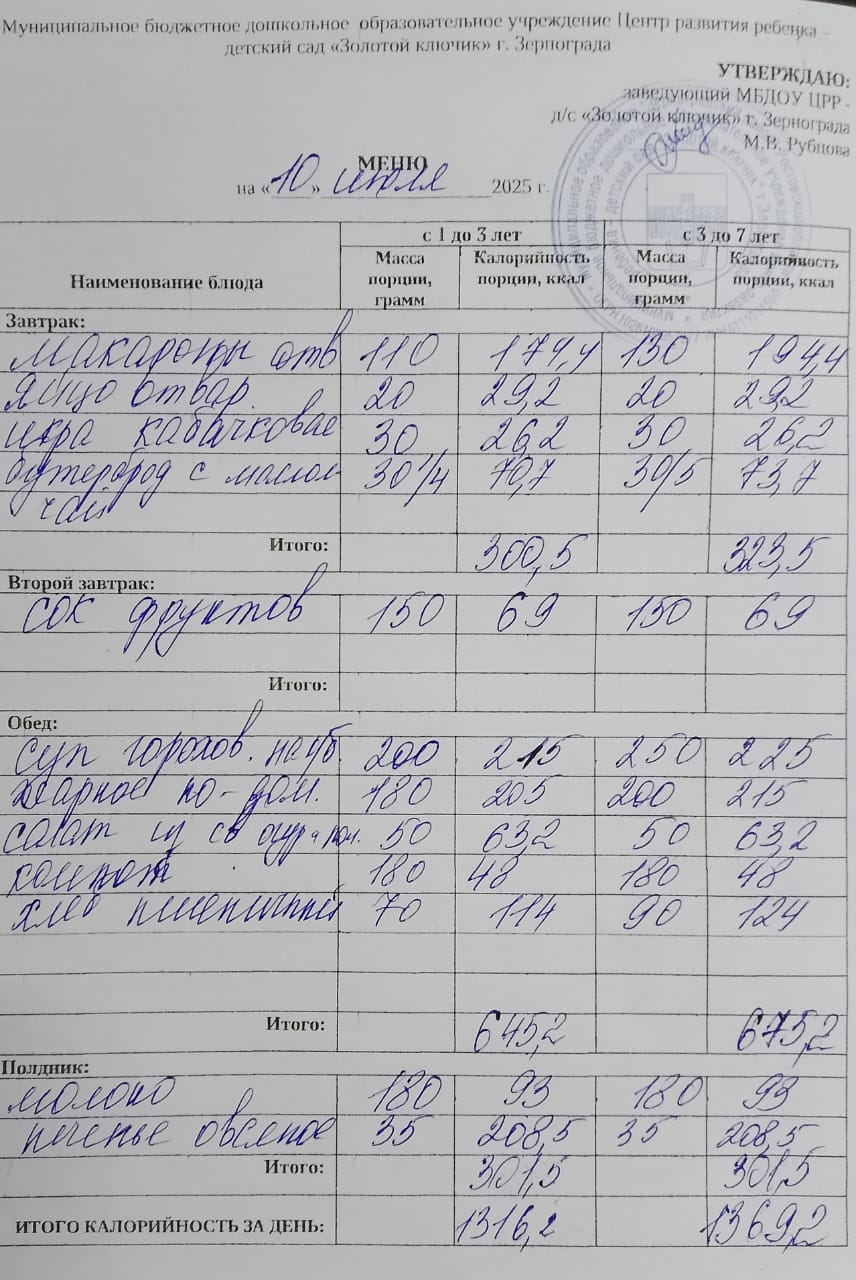 Муниципальное бюджетное дошкольное образовательное учреждение Центр развития ребенка –
детский сад «Золотой ключик» г. Зернограда
УТВЕРЖДАЮ:
заведующий МБДОУ ЦРР -
д/с «Золотой ключик» г. Зернограда
М.В. Рубцова
МЕНЮ
на « 10 » июля 2025 г.
Наименование блюда с 1 до 3 лет с 3 до 7 лет
Масса порции, грамм Калорийность порции, ккал Масса порции, грамм Калорийность порции, ккал
Завтрак:
макароны отв 110 174,4 130 194,4
яйцо отвар. 20 29,2 20 29,2
икра кабачковая 30 26,2 30 26,2
бутерброд с маслом 30/4 70,7 30/5 73,7
чай
Итого: 300,5 323,5
Второй завтрак:
сок фруктов 150 69 150 69
Итого:
Обед:
суп горохов. на 200 215 250 225
жаркое по-дом. 180 205 200 215
салат из св огур и пом. 50 63,2 50 63,2
компот 180 48 180 48
хлеб пшеничный 70 114 90 124
Итого: 645,2 675,2
Полдник:
молоко 180 93 180 93
печенье овсяное 35 208,5 35 208,5
Итого: 301,5 301,5
ИТОГО КАЛОРИЙНОСТЬ ЗА ДЕНЬ: 1316,2 1369,2